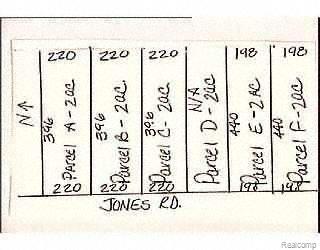 220 220 220 198 198
N↑
396
Parcel A-2ac
396
Parcel B-2ac.
396
Parcel C-2ac
N/A
Parcel D-2ac
440
Parcel E-2AC
440
Parcel F-2ac
220 220 220 198 198
JONES RD.
Realcomp